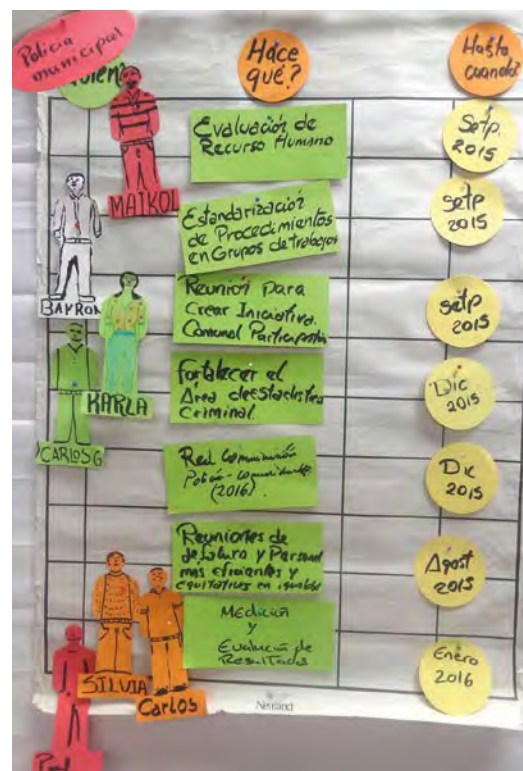 Policia
municipal
Quien
Hace
qué?
Hasta
cuando?
MAIKOL
Evaluación de
Recurso Humano
Setp.
2015
BAYRON
Estandarización
de Procedimientos
en Grupos de trabajos
setp
2015
KARLA
Reunión para
Crear Iniciativa
Comunal Participativa
setp
2015
CARLOS G
Fortalecer el
Área de estadistica
Criminal.
Dic
2015
Red Comunicación
Policia-Comunidad
(2016).
Dic
2015
Reuniones de
jefatura y Personal
más eficientes y
equitativas en igualdad
Agost
2015
SILVIA
Carlos
Medición
y
Evaluación de
Resultados
Enero
2016
Neuland